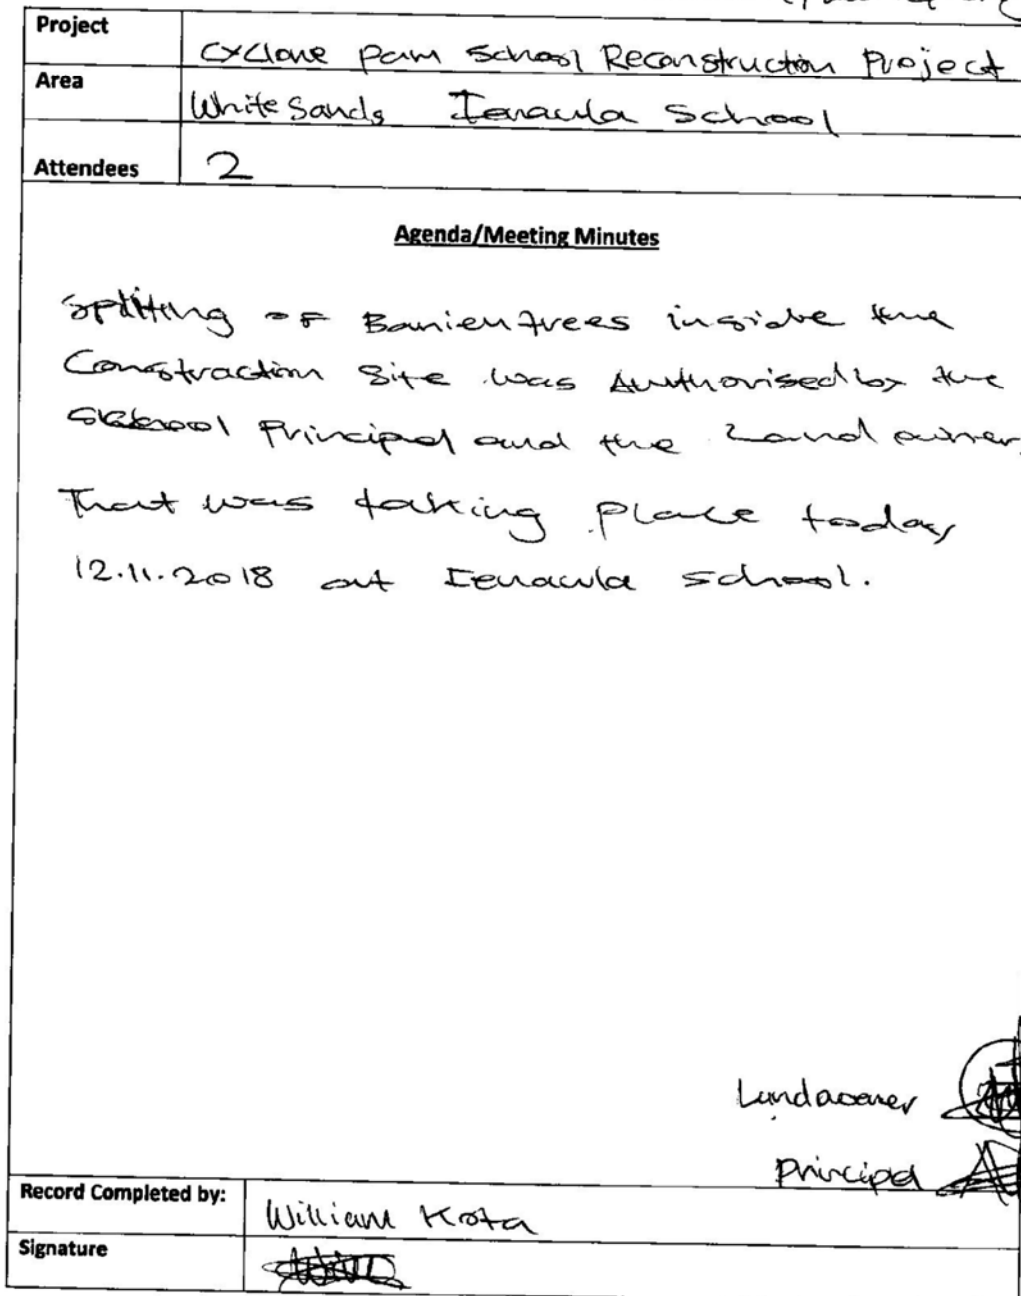 Project
Cyclone Pam School Reconstruction Project
Area
White Sands Ienaula School
Attendees 2
Agenda/Meeting Minutes
Spliting of Banien trees inside the
Constraction Site was Authorised by the
School Principal and the Land owner.
That was taking place today
12.11.2018 at Ienaula School.
Landowner
Principal
Record Completed by: William Kota
Signature